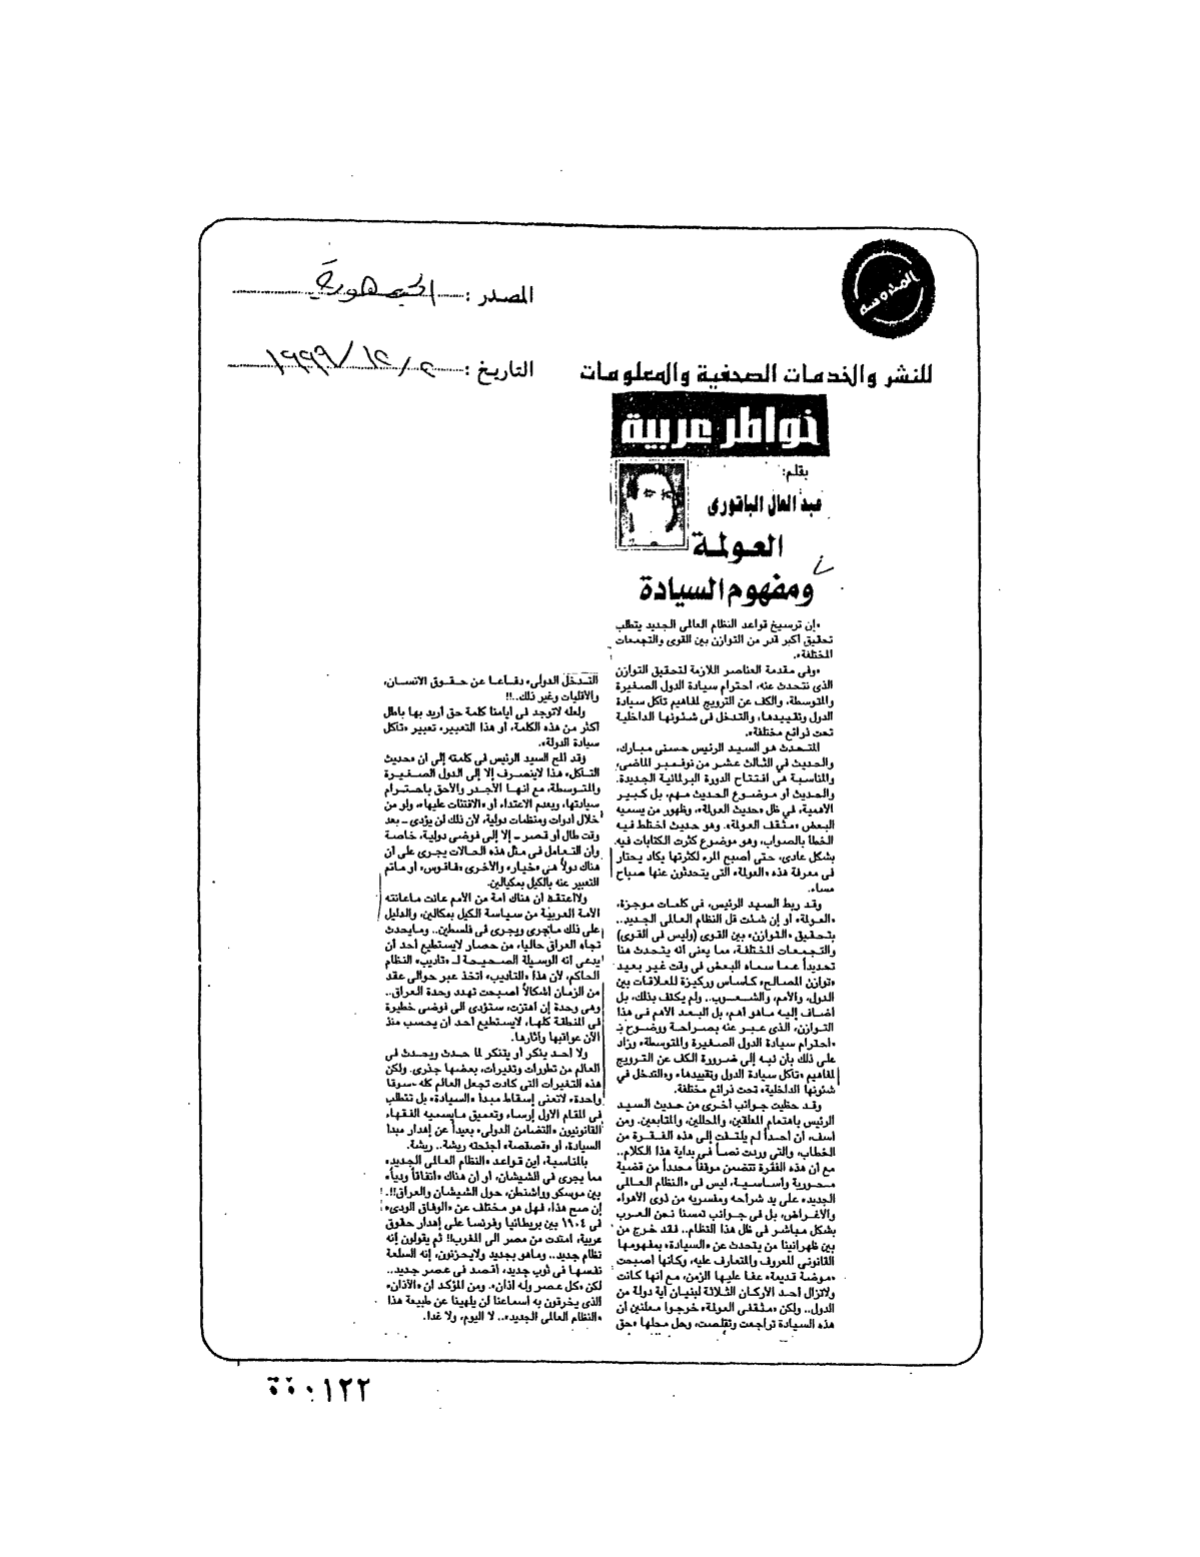 المحروسة
للنشر والخدمات الصحفية والمعلومات
المصدر : الجمهورية
التاريخ : ٢ / ١٢ / ١٩٩٩
خواطر عربية
بقلم:
عبد العال الباقورى
العولمة
ومفهوم السيادة
«إن ترسيخ قواعد النظام العالمى الجديد يتطلب
تحقيق أكبر قدر من التوازن بين القوى والتجمعات
المختلفة».
«وفى مقدمة العناصر اللازمة لتحقيق التوازن
الذى نتحدث عنه، احترام سيادة الدول الصغيرة
والمتوسطة، والكف عن الترويج لمفاهيم تآكل سيادة
الدول وتقييدها، والتدخل فى شئونها الداخلية
تحت ذرائع مختلفة».
المتحدث هو السيد الرئيس حسنى مبارك،
والحديث فى الثالث عشر من نوفمبر الماضى،
والمناسبة هى افتتاح الدورة البرلمانية الجديدة.
والحديث أو موضوع الحديث مهم، بل كبير
الأهمية، فى ظل «حديث العولمة»، وظهور من يسميه
البعض «مثقف العولمة». وهو حديث اختلط فيه
الخطأ بالصواب، وهو موضوع كثرت الكتابات فيه
بشكل عادى، حتى أصبح المرء لكثرتها يكاد يحتار
فى معرفة هذه «العولمة» التى يتحدثون عنها صباح
مساء.
وقد ربط السيد الرئيس، فى كلمات موجزة،
«العولمة» أو إن شئت قل النظام العالمى الجديد..
بتحقيق «التوازن» بين القوى (وليس فى القوى)
والتجمعات المختلفة، مما يعنى أنه يتحدث هنا
تحديداً عما سماه البعض فى وقت غير بعيد
«توازن المصالح» كأساس وركيزة للعلاقات بين
الدول، والأمم، والشعوب.. ولم يكتف بذلك، بل
أضاف إليه ماهو أهم، بل البعد الأهم فى هذا
التوازن، الذى عبر عنه بصراحة ووضوح بـ
«احترام سيادة الدول الصغيرة والمتوسطة» وزاد
على ذلك بأن نبه إلى ضرورة الكف عن الترويج
لمفاهيم «تآكل سيادة الدول وتقييدها» و«التدخل فى
شئونها الداخلية» تحت ذرائع مختلفة.
وقد حظيت جوانب أخرى من حديث السيد
الرئيس باهتمام المعلقين، والمحللين، والمتابعين. ومن
أسف، أن أحداً لم يلتفت إلى هذه الفقرة من
الخطاب، والتى وردت نصاً فى بداية هذا الكلام..
مع أن هذه الفقرة تتضمن موقفاً محدداً من قضية
محورية وأساسية، ليس فى «النظام العالمى
الجديد» على يد شراحه ومفسريه من ذوى الأهواء
والأغراض، بل فى جوانب تمسنا نحن العرب
بشكل مباشر فى ظل هذا النظام.. فقد خرج من
بين ظهرانينا من يتحدث عن «السيادة» بمفهومها
القانونى المعروف والمتعارف عليه، وكأنها أصبحت
«موضة قديمة» عفا عليها الزمن، مع أنها كانت
ولاتزال أحد الأركان الثلاثة لبنيان أية دولة من
الدول.. ولكن «مثقفى العولمة» خرجوا معلنين أن
هذه السيادة تراجعت وتقلصت، وحل محلها «حق
التدخل الدولى» دفاعا عن حقوق الانسان،
والأقليات وغير ذلك..!!
ولعله لاتوجد فى أيامنا كلمة حق أريد بها باطل
أكثر من هذه الكلمة، أو هذا التعبير، تعبير «تآكل
سيادة الدولة».
وقد ألمح السيد الرئيس فى كلمته إلى أن «حديث
التآكل» هذا لاينصرف إلا إلى الدول الصغيرة
والمتوسطة، مع انها الأجدر والأحق باحترام
سيادتها، وبعدم الاعتداء أو «الافتئات عليها»، ولو من
خلال أدوات ومنظمات دولية، لأن ذلك لن يؤدى ــ بعد
وقت طال أو قصر ــ إلا إلى فوضى دولية، خاصة
وأن التعامل فى مثل هذه الحالات يجرى على أن
هناك دولاً هى «خيار» والأخرى «فاقوس» أو ماتم
التعبير عنه بالكيل بمكيالين.
ولاأعتقد أن هناك أمة من الأمم عانت ماعانته
الأمة العربية من سياسة الكيل بمكيالين، والدليل
على ذلك ماجرى ويجرى فى فلسطين.. ومايحدث
تجاه العراق حاليا، من حصار لايستطيع أحد أن
يدعى أنه الوسيلة الصحيحة لـ «تأديب» النظام
الحاكم، لأن هذا «التأديب» اتخذ عبر حوالى عقد
من الزمان أشكالاً أصبحت تهدد وحدة العراق..
وهى وحدة إن اهتزت، ستؤدى الى فوضى خطيرة
فى المنطقة كلها، لايستطيع أحد أن يحسب منذ
الآن عواقبها وآثارها.
ولا أحد ينكر أو يتنكر لما حدث ويحدث فى
العالم من تطورات وتغيرات، بعضها جذرى. ولكن
هذه التغيرات التى كادت تجعل العالم كله «سوقا
واحدة» لاتعنى إسقاط مبدأ «السيادة» بل تتطلب
فى المقام الأول إرساء وتعميق مايسميه الفقهاء
القانونيون «التضامن الدولى» بعيداً عن إهدار مبدأ
السيادة، أو «قصقصة» أجنحته ريشة.. ريشة.
بالمناسبة، أين قواعد «النظام العالمى الجديد»
مما يجرى فى الشيشان، أو أن هناك «اتفاقاً ودياً»
بين موسكو وواشنطن، حول الشيشان والعراق!!.
إن صح هذا، فهل هو مختلف عن «الوفاق الودى»
فى ١٩٠٤ بين بريطانيا وفرنسا على إهدار حقوق
عربية، امتدت من مصر الى المغرب!! ثم يقولون إنه
نظام جديد.. وماهو بجديد ولايحزنون، إنه السلعة
نفسها فى ثوب جديد، أقصد فى عصر جديد..
لكن «كل عصر وله أذان». ومن المؤكد أن «الأذان»
الذى يخرقون به أسماعنا لن يلهينا عن طبيعة هذا
«النظام العالمى الجديد».. لا اليوم، ولا غدا.